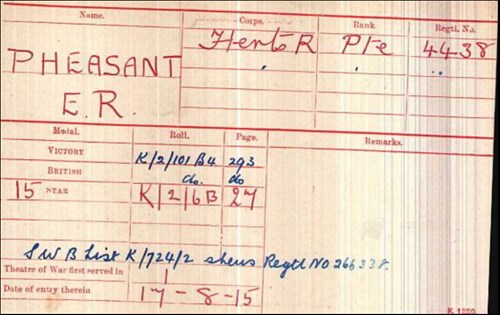 Name. Corps. Rank. Regtl. No.
PHEASANT Herts R Pte 4438
E.R. " " "
Medal. Roll. Page. Remarks.
VICTORY K/2/101 B4 293
BRITISH do. do
15 STAR K/2/6B 27
S W B List K/724/2 shews Regtl No 266338.
Theatre of War first served in 1
Date of entry therein 17-8-15
K 1380.